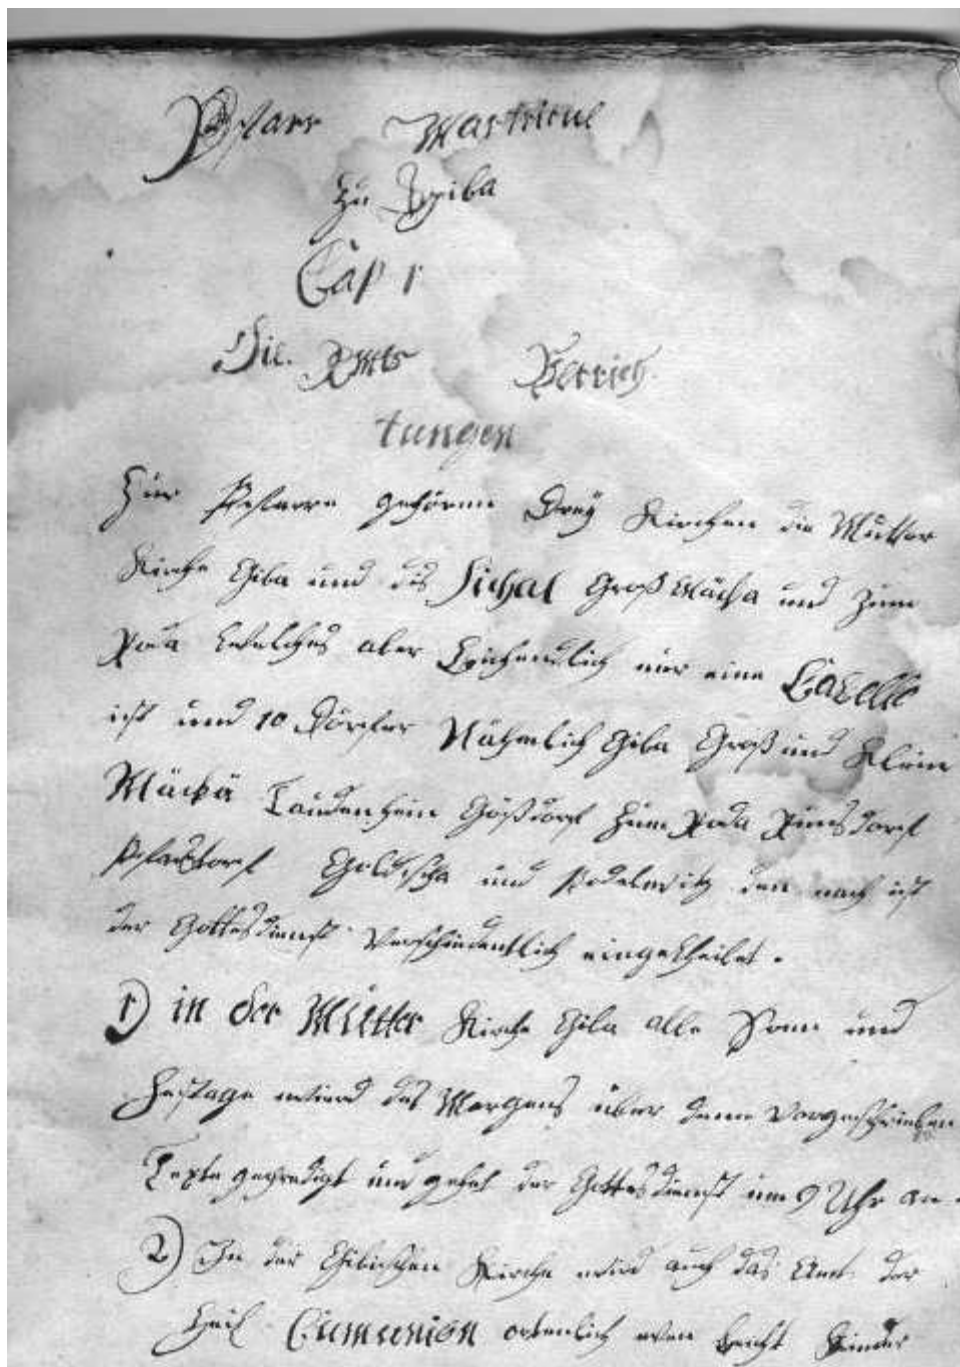 Pfarr Martricul
zu Gpiba
Cap 1
Die. Amts Verrich
tungen
Zur Pfarre gehören Drey Kirchen die Mutter
Kirche Giba und das Filjal Groß und zum
Roda welches aber eine Capelle
ist und 10 Dörfer Nähmlich Giba Groß und Klein
Taudenhein Gößdorf zum Roda Rinsdorf
und Podelwitz den nach ist
der Gottesdienst eingetheilet.
1) in der Mutter Kirche Giba alle Sonn und
Festage wierd des Morgens über denn Vorgeschrieben
Texte geprediget und gehet der Gottesdienst um 9 Uhr an.
2) In der Gibischen Kirche wird auch das Amt der
Heil Cumunion ordenlich wen beicht Kinder